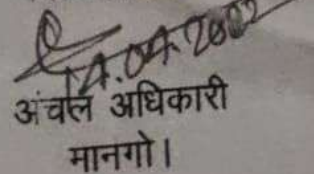 14.04.2002
अंचल अधिकारी
मानगो।